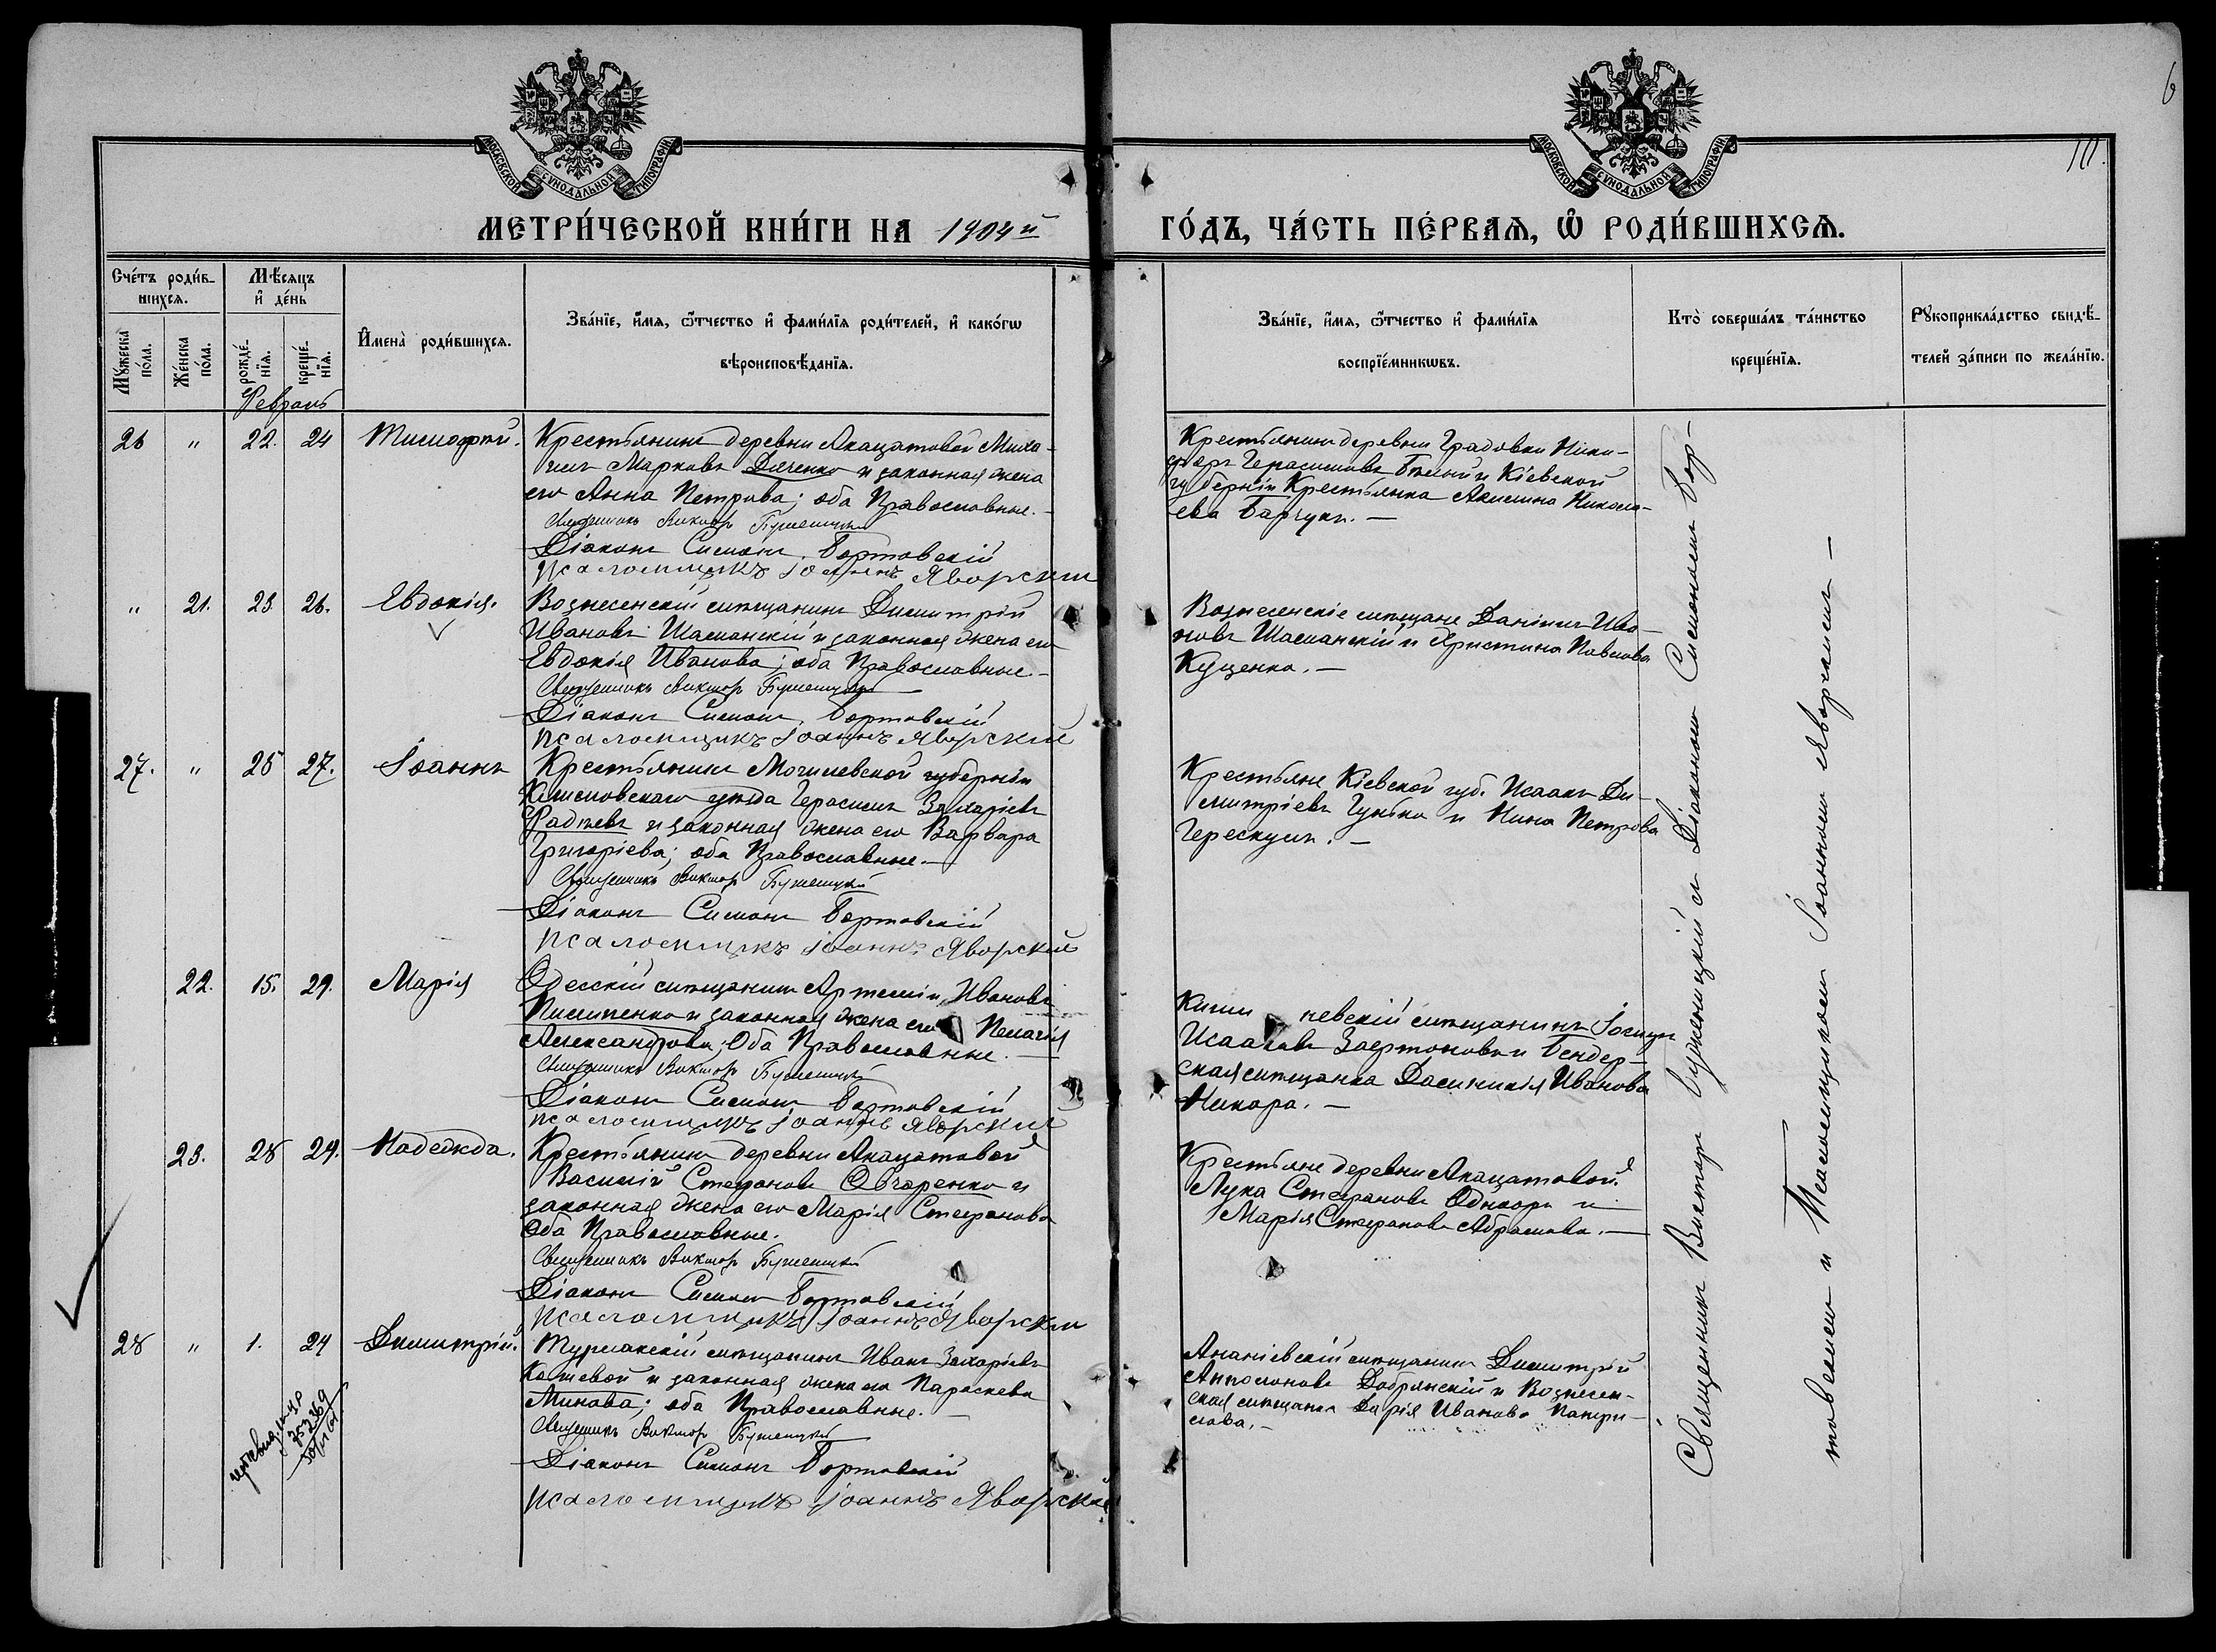 МОСКОВСКОЙ СѴНОДАЛЬНОЙ ТИПОГРАФІИ
МОСКОВСКОЙ СѴНОДАЛЬНОЙ ТИПОГРАФІИ
6
МЕТРИ́ЧЕСКОЙ КНИ́ГИ НА 1904й
ГО́ДЪ, ЧА́СТЬ ПЕ́РВАѦ, Ѡ҆ РОДИ́ВШИХСѦ.
Сче́тъ роди́в-
шихсѧ.
Мꙋ́жеска по́ла.
Же́нска по́ла.
Мѣ́сѧцъ и҆ де́нь
рожде́-нїѧ.
креще́-нїѧ.
И҆мена̀ роди́вшихсѧ.
Зва́нїе, и҆́мѧ, ѻ҆́тчество и҆ фами́лїѧ роди́телей, и҆ како́гѡ
вѣроисповѣ́данїѧ.
Зва́нїе, и҆́мѧ, ѻ҆́тчество и҆ фами́лїѧ
воспрїе́мникѡвъ.
Кто̀ соверша́лъ та́инство
креще́нїѧ.
Рꙋкоприкла́дство свидѣ́-
телей за́писи по жела́нїю.
Февраль
26 " 22. 24 Тимофей. Крестьянинъ деревни Акацатовой Миха-
илъ Марковъ Дяченко и законная жена
его Анна Петрова; оба Православные. -
Священникъ Викторъ
Діаконъ Симеонъ Бортовскій
псаломщикъ Іоаннъ Яворскій
Крестьянинъ деревни Градовки Ники-
форъ Герасимовъ и Кіевской
губерніи Крестьянка Акилина Никола-
ева Барчукъ. —
" 21. 23 26. Евдокія. Вознесенскій мѣщанинъ Димитрій
Ивановъ Шаманскій и законная жена его
Евдокія Иванова; оба Православные. -
Священникъ Викторъ
Діаконъ Симеонъ Бортовскій
псаломщикъ Іоаннъ Яворскій
Вознесенскіе мѣщане Даніилъ Ива-
новъ Шаманскій и Христина Павлова
Куценко. —
27. " 25 27. Іоаннъ Крестьянинъ Могилевской губерніи
Климовскаго уѣзда Герасимъ Захаріевъ
Фадѣевъ и законная жена его Варвара
Григоріева; оба Православные. —
Священникъ Викторъ
Діаконъ Симеонъ Бортовскій
псаломщикъ Іоаннъ Яворскій
Крестьяне Кіевской губ. Исаакъ Ди-
митріевъ и Нина Петрова
22. 15. 29. Марія Одесскій мѣщанинъ Артемій Ивановъ
Пилипенко и законная жена его Пелагія
Александрова; Оба Православные. —
Священникъ Викторъ
Діаконъ Симеонъ Бортовскій
псаломщикъ Іоаннъ Яворскій
Кишиневскій мѣщанинъ
Исааковъ и Бендер-
ская мѣщанка Домникія Иванова
23. 28 29. Надежда. Крестьянинъ деревни Акацатовой
Василій Стефановъ Овчаренко и
законная жена его Марія Стефанова
Оба Православные.
Священникъ Викторъ
Діаконъ Симеонъ Бортовскій
псаломщикъ Іоаннъ Яворскій
Крестьяне деревни Акацатовой
Лука Стефановъ и
Марія Стефанова Абрамова. —
28 " 1. 29 Димитрій. Турлакскій мѣщанинъ Иванъ Захаріевъ
Кошевой и законная жена его Параскева
Минова; оба Православные. —
Священникъ Викторъ
Діаконъ Симеонъ Бортовскій
псаломщикъ Іоаннъ Яворскій
Ананіевскій мѣщанинъ Димитрій
Антоновъ Добрянскій и Вознесен-
ская мѣщанка Дарія Иванова
Священникъ Викторъ съ Діакономъ Симеономъ Бор-
товскимъ и Псаломщикомъ Іоанномъ Яворскимъ —